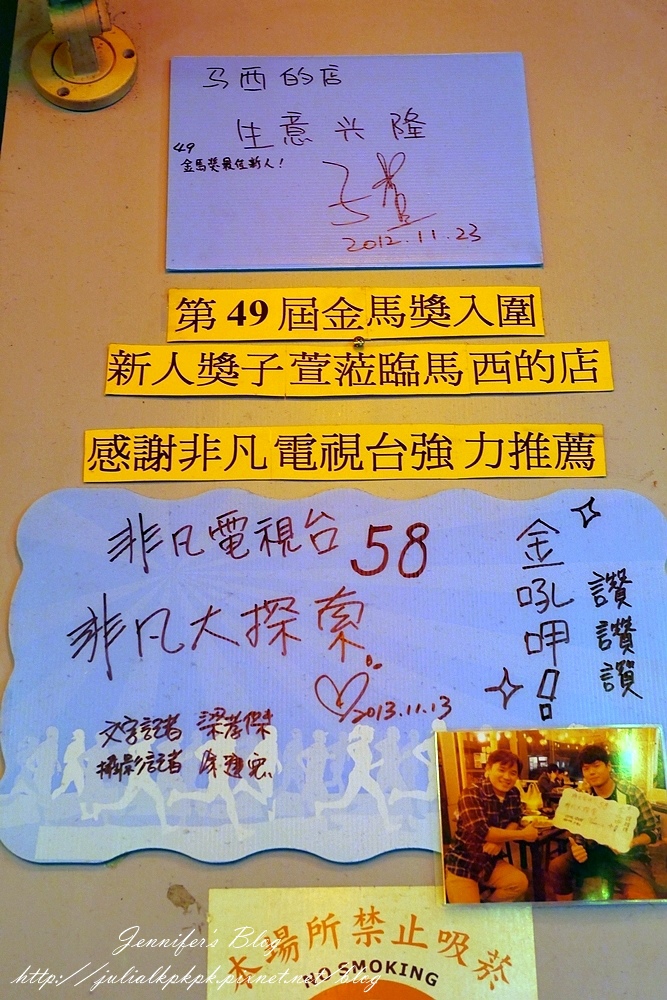 马西的店
生意兴隆
49
金馬獎最佳新人!
2012.11.23
第49屆金馬獎入圍
新人獎子萱蒞臨馬西的店
感謝非凡電視台強力推薦
非凡電視台 58
非凡大探索
金吼呷!
讚讚讚
2013.11.13
文字記者 梁孝傑
攝影記者
本場所禁止吸菸
NO SMOKING
Jennifer's Blog
http://julialkpkpk.pixnet.net/blog